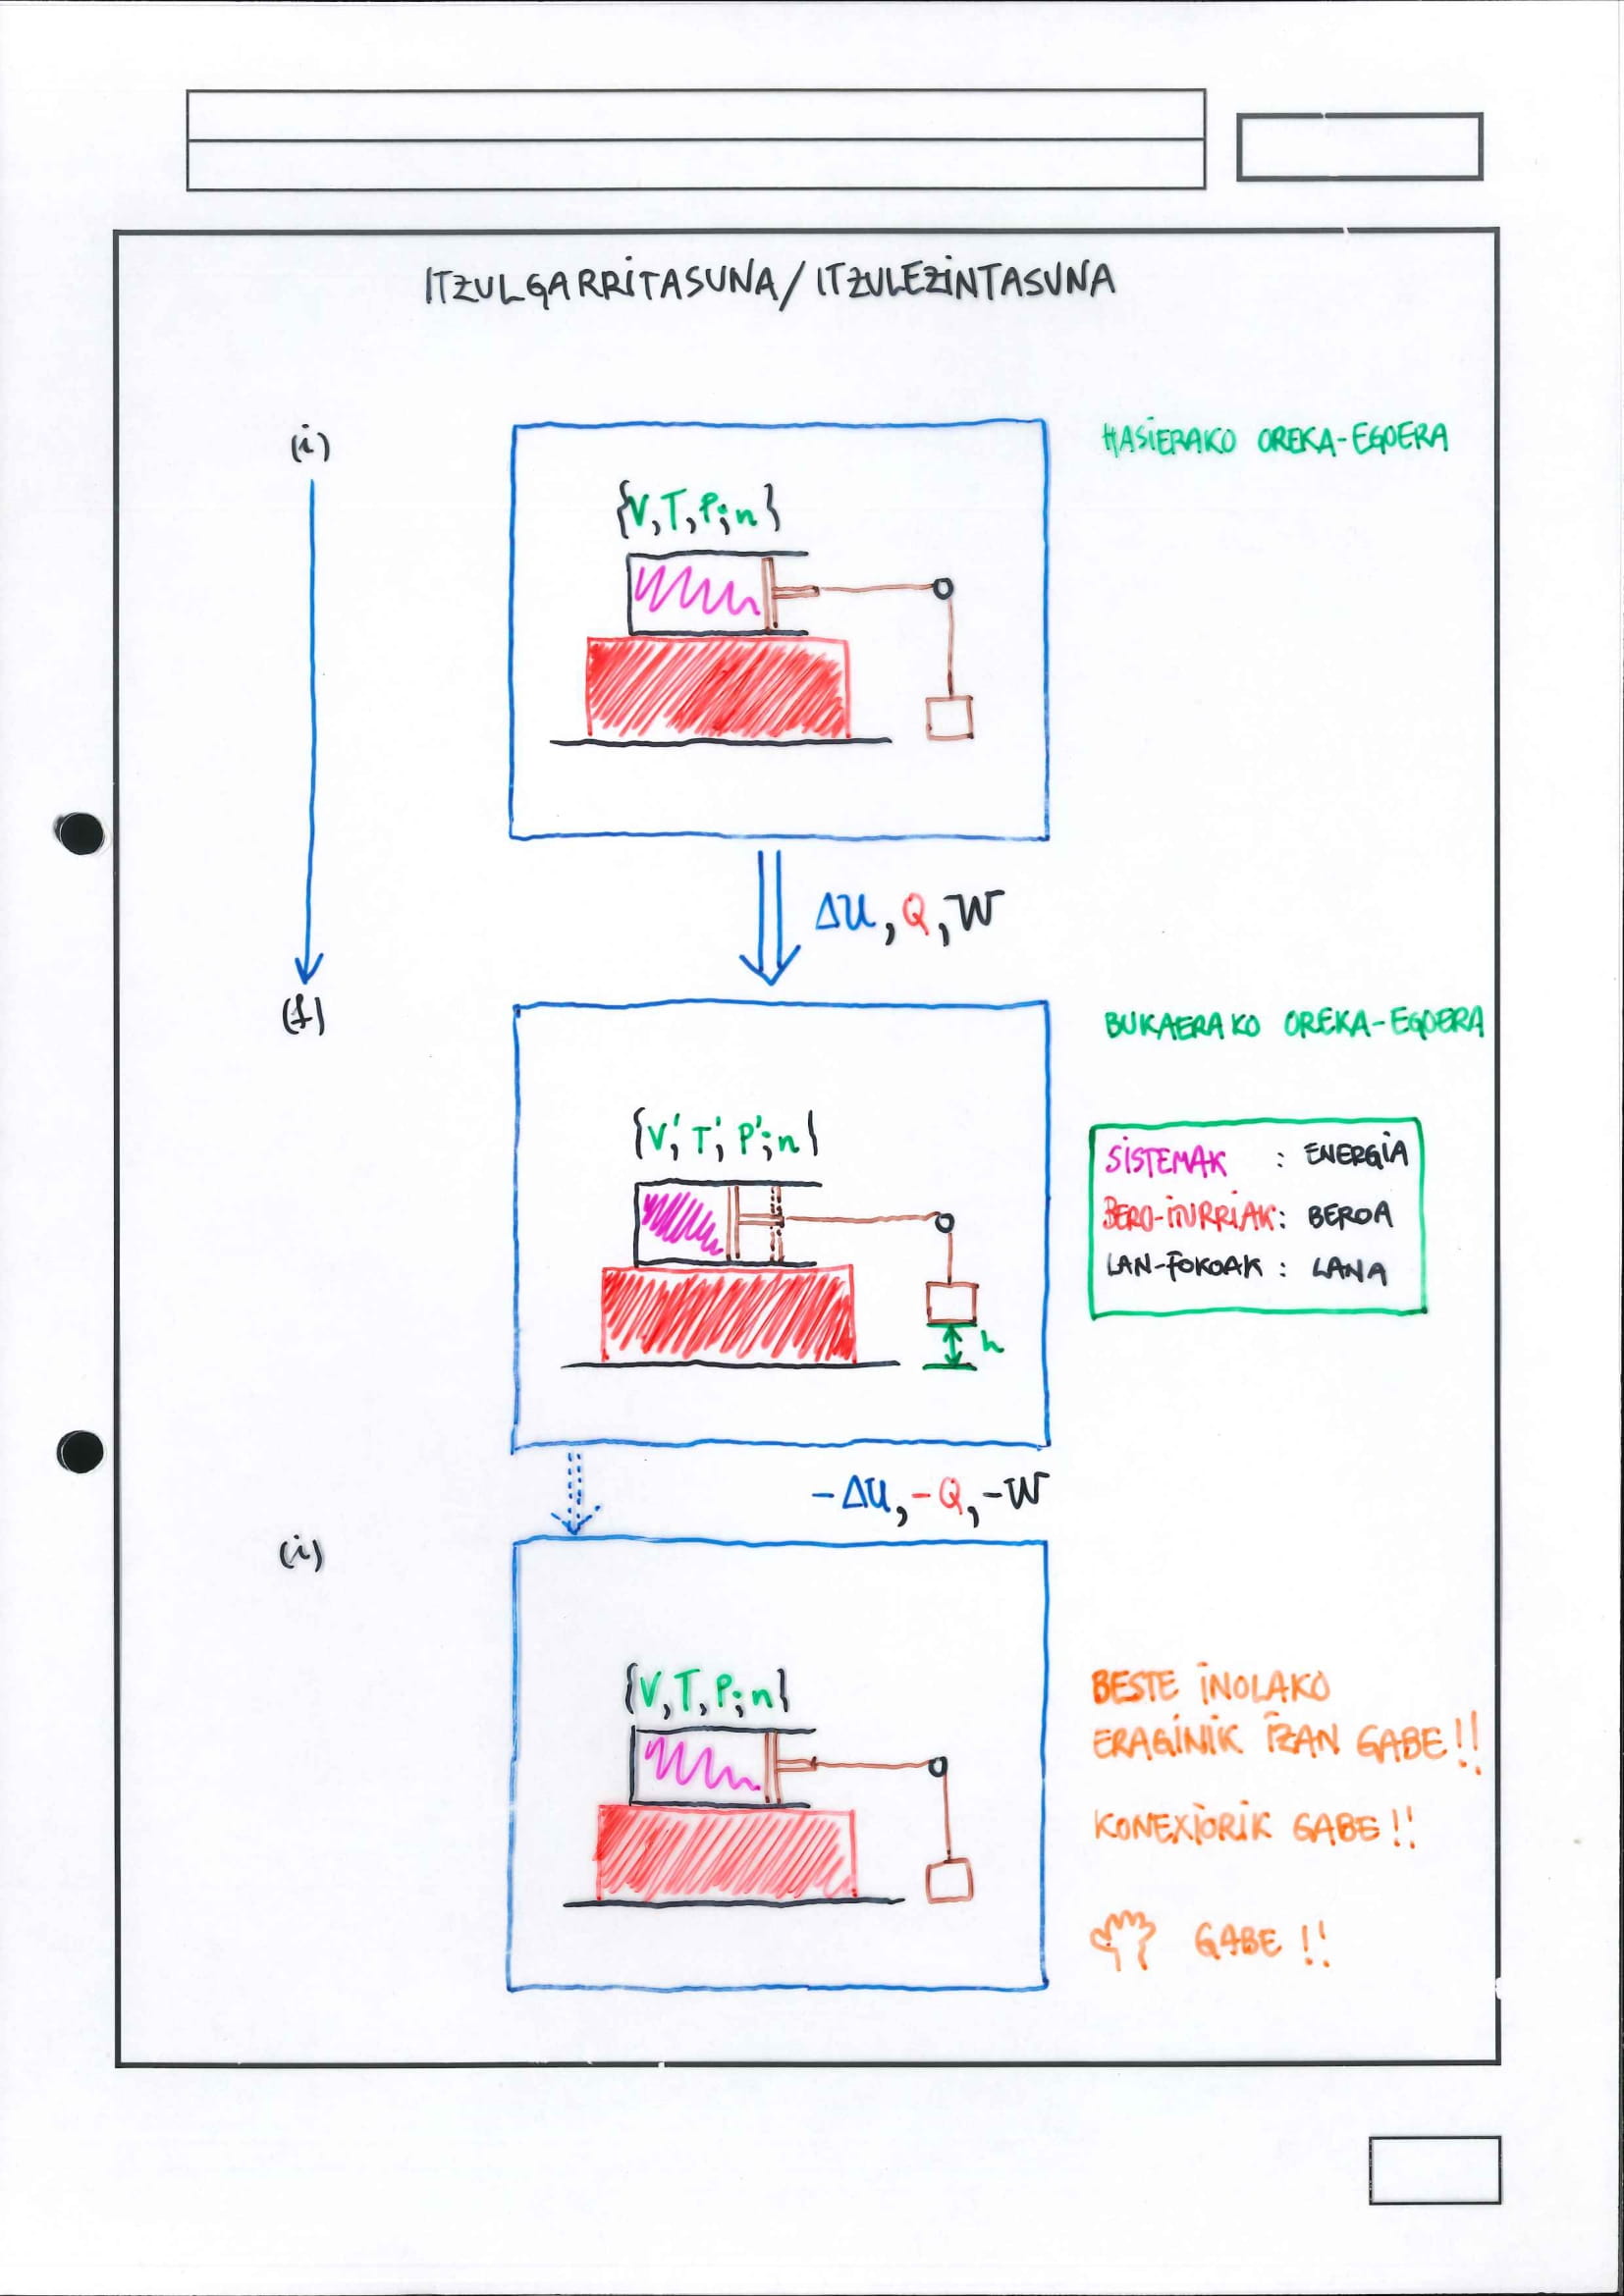 ITZULGARRITASUNA / ITZULEZINTASUNA
(i)
HASIERAKO OREKA-EGOERA
{V,T,P;n}
ΔU, Q, W
(f)
BUKAERAKO OREKA-EGOERA
{V',T',P';n}
SISTEMAK : ENERGIA
BERO-ITURRIAK: BEROA
LAN-FOKOAK : LANA
h
-ΔU, -Q, -W
(i)
{V,T,P;n}
BESTE INOLAKO
ERAGINIK IZAN GABE!!
KONEXIORIK GABE!!
GABE!!